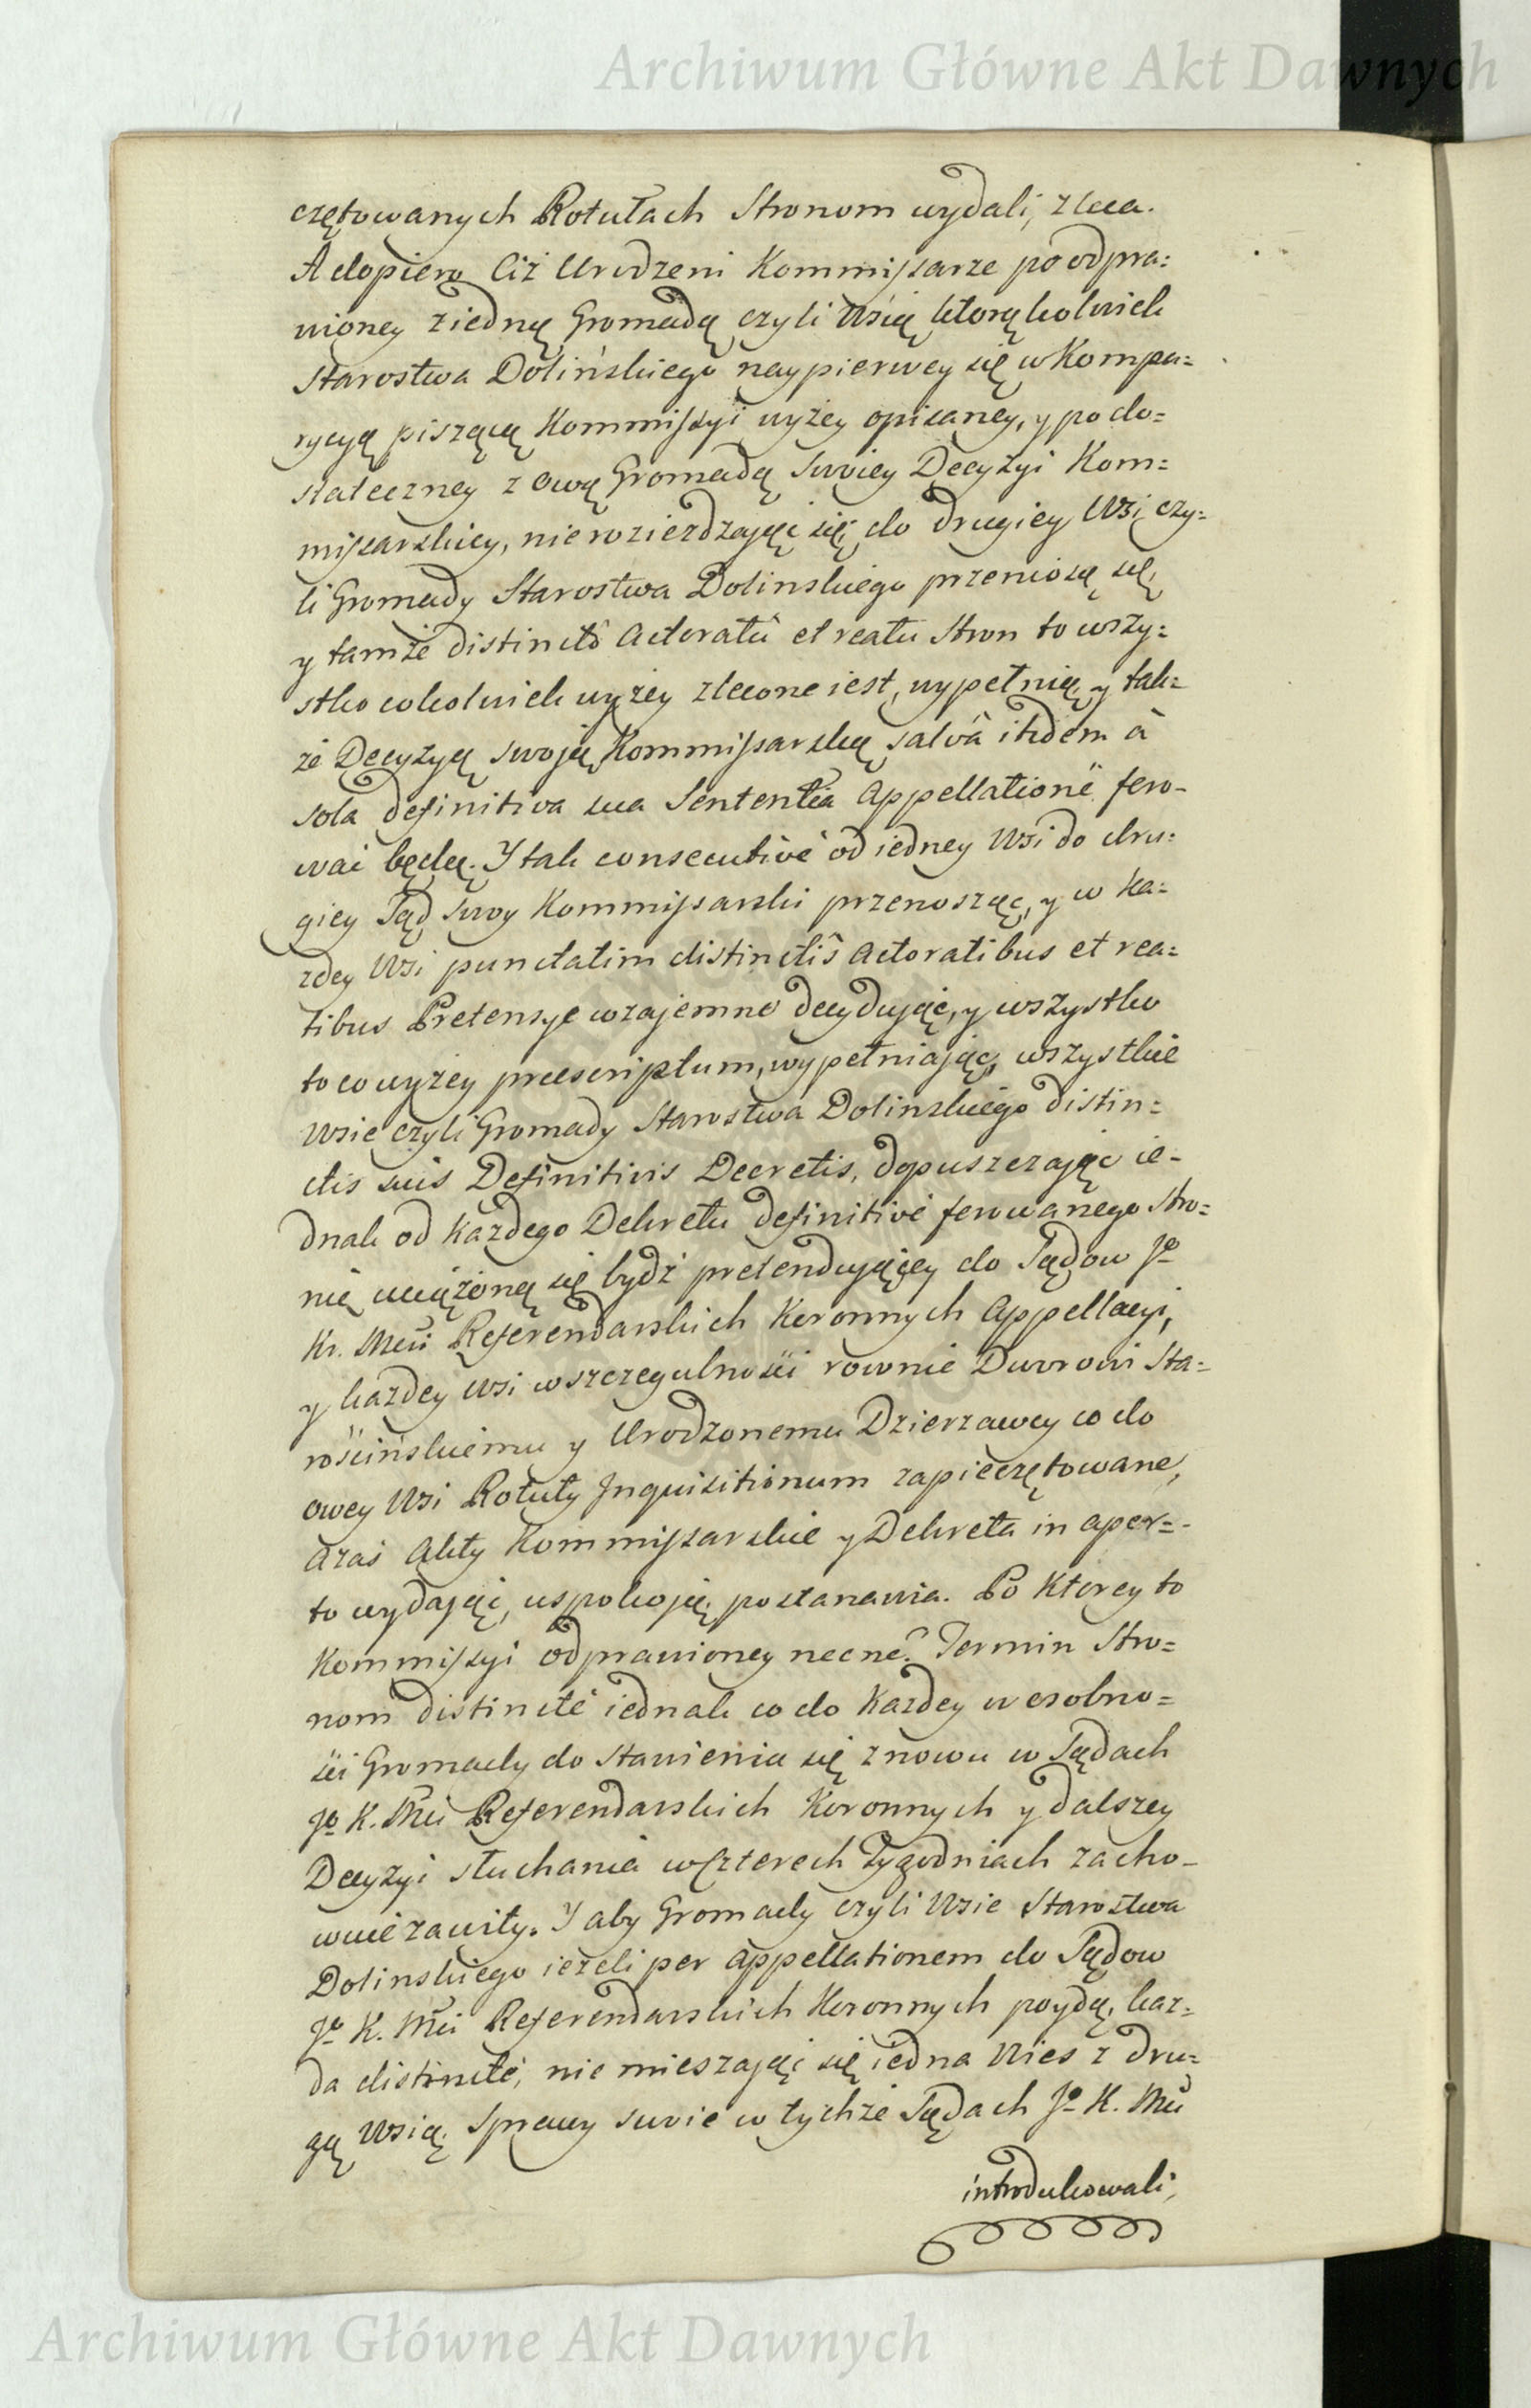 Archiwum Główne Akt Dawnych
czętowanych Rotułach Stronom wydali, zleca.
A dopiero Ciż Urodzeni Kommissarze po odpra=
wioney z iedną Gromadą czyli Wsią ktorąkolwiek
Starostwa Dolińskiego naypierwey się w Kompa=
rycyą piszącą Kommissyi wyżey opisaney, y po do=
stateczney z ową Gromadą swoiey Decyzyi Kom=
missarskiey, nierozierdzaiąc się, do drugiey Wsi czy=
li Gromady Starostwa Dolinskiego przeniosą się,
y tamże distinctô Actoratû et reatu Stron to wszy=
stko cokolwiek wyżey zlecone iest, wypełnią, y tak=
że Decyzyą swoją Kommissarską, salvâ itidem à
sola definitiva sua Sententia Appellatione fero-
wać będą. Y tak consecutivè od iedney Wsi do dru=
giey Sąd swoy Kommissarski przenosząc, y w ka=
zdey Wsi punctatim distinctîs Actoratibus et rea=
tibus Pretensye wzajemne decydując, y wszystko
to co wyżey praescriptum, wypełniając, wszystkie
Wsie czyli Gromady Starostwa Dolinskiego distin=
ctis suis Definitivis Decretis, dopuszczając ie-
dnak od każdego Dekretu definitivè ferowanego Stro=
nie uciążoną się bydź pretenduiącey do Sądow Jo
Kr. Mci Referendarskich Koronnych Appellacyi,
y kazdey Wsi w szczegulności rownie Dworowi Sta=
rościńskiemu y Urodzonemu Dzierzawcy co do
owey Wsi Rotuły Inquisitionum zapieczętowane,
a zaś Akty Kommissarskie y Dekreta in aper=
to wydając, uspokoją, postanawia. Po Ktorey to
Kommissyi odprawioney necne? Termin Stro=
nom distinctè iednak co do Kazdey w osobno=
ści Gromady do stawienia się znowu w Sądach
Jo K. Mci Referendarskich Koronnych y dalszey
Decyzyi słuchania w Czterech Tygodniach zacho-
wuie zawity. Y aby Gromady czyli Wsie Starostwa
Dolinskiego ieżeli per Appellationem do Sądow
Jo K. Mci Referendarskich Koronnych poydą, kaz=
da distinctè, nie mieszając się iedna Wieś z dru=
gą Wsią, Sprawy swoie w tychże Sądach Jo K. Mci
introdukowali,
Archiwum Główne Akt Dawnych